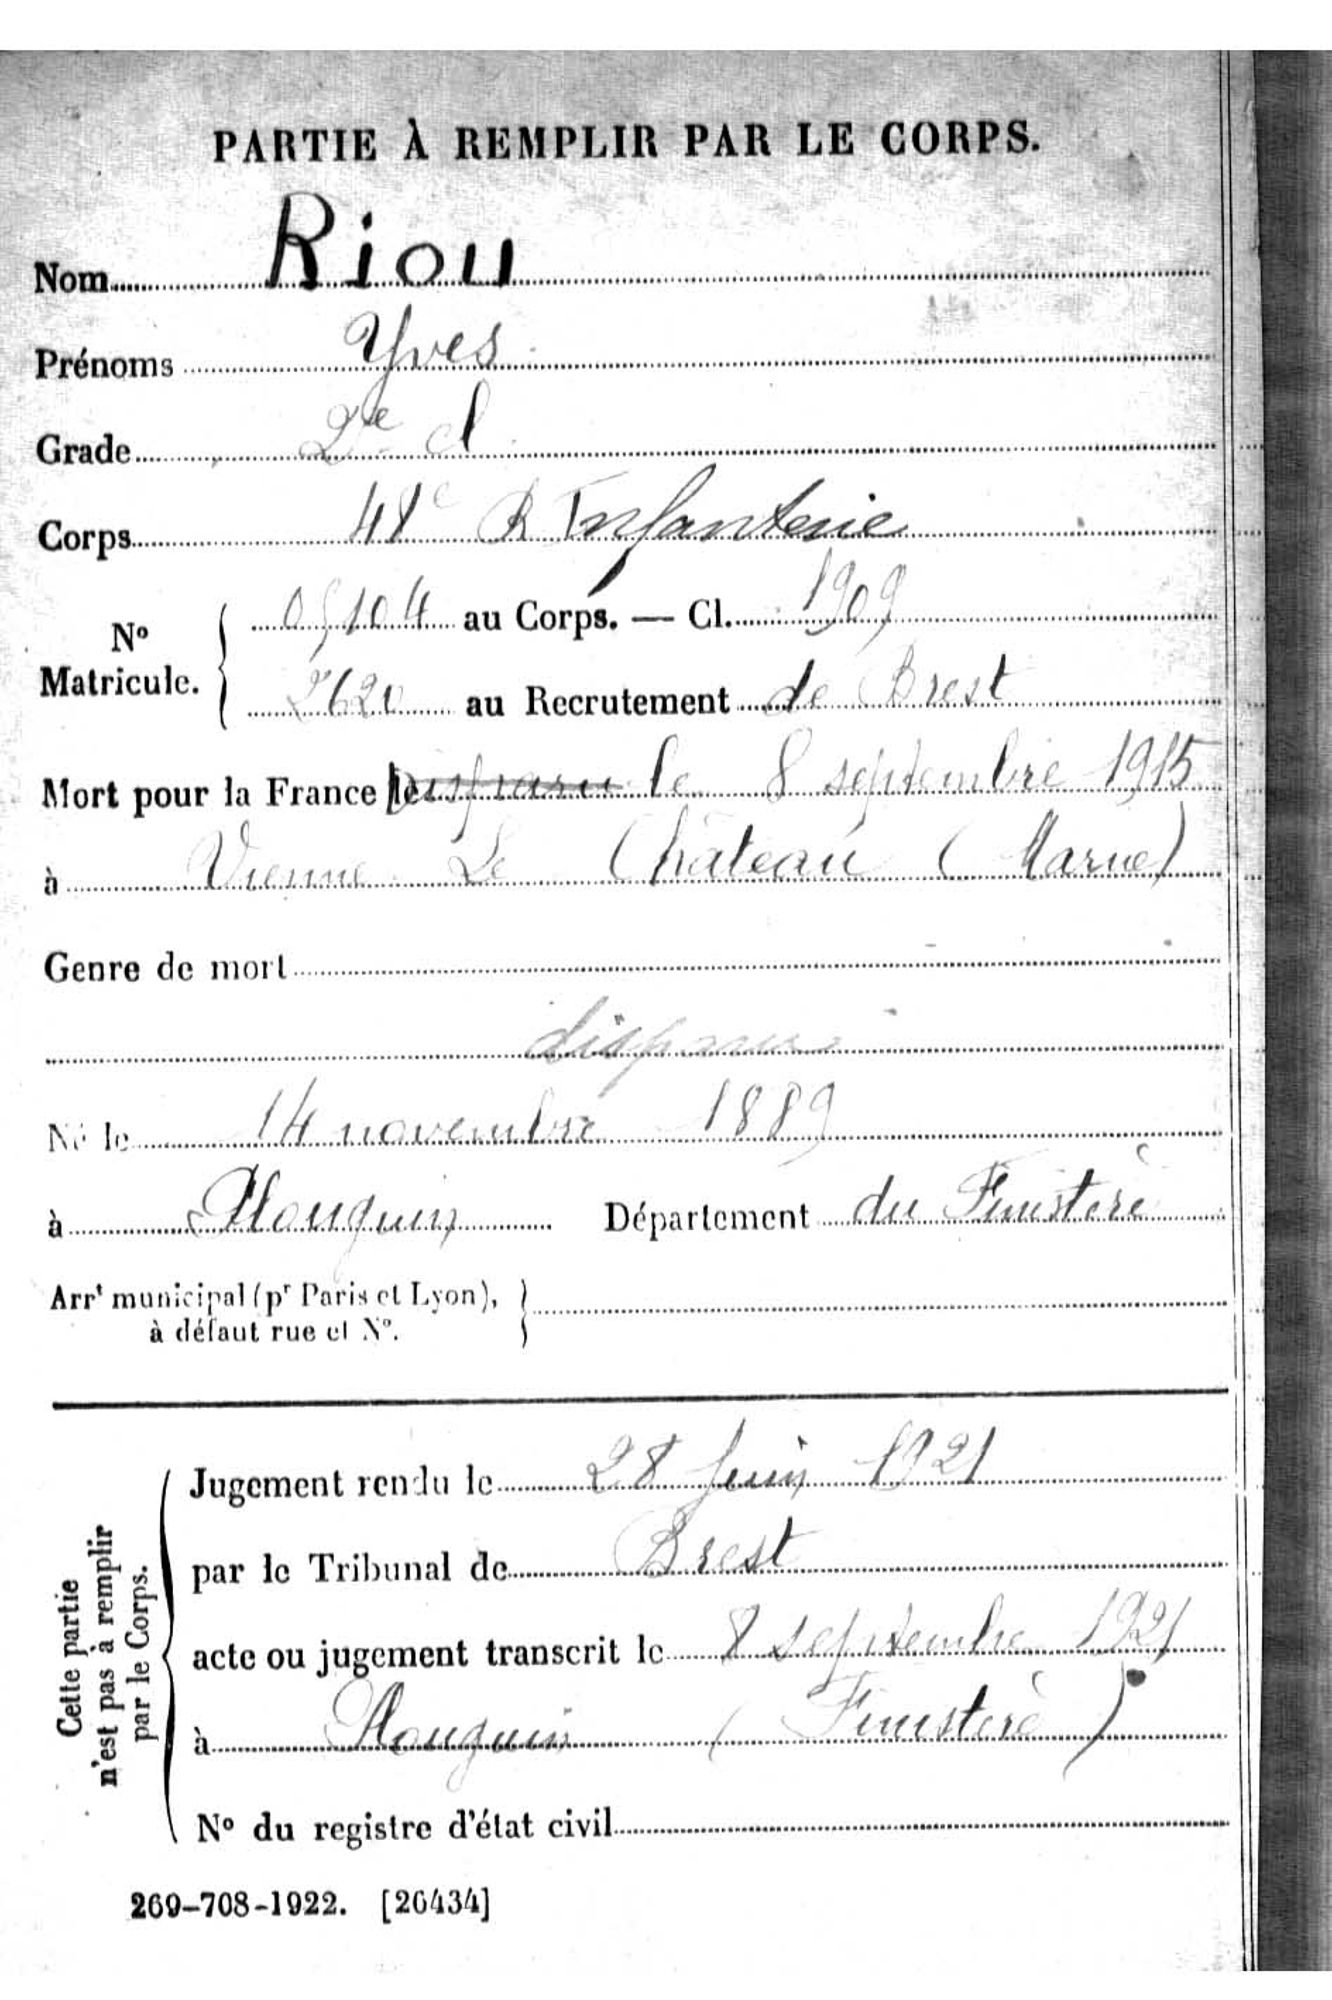 PARTIE À REMPLIR PAR LE CORPS.
Nom Riou
Prénoms Yves
Grade 2e cl
Corps 48e R Infanterie
No Matricule. 05104 au Corps. — Cl. 1909
2620 au Recrutement de Brest
Mort pour la France le disparu le 8 septembre 1915
à Vienne Le Château (Marne)
Genre de mort
disparu
Né le 14 novembre 1889
à Plouguin Département du Finistère
Arrt municipal (pr Paris et Lyon),
à défaut rue et No.
Cette partie
n'est pas à remplir
par le Corps.
Jugement rendu le 28 juin 1921
par le Tribunal de Brest
acte ou jugement transcrit le 8 septembre 1921
à Plouguin (Finistère)
No du registre d'état civil
269-708-1922. [26434]